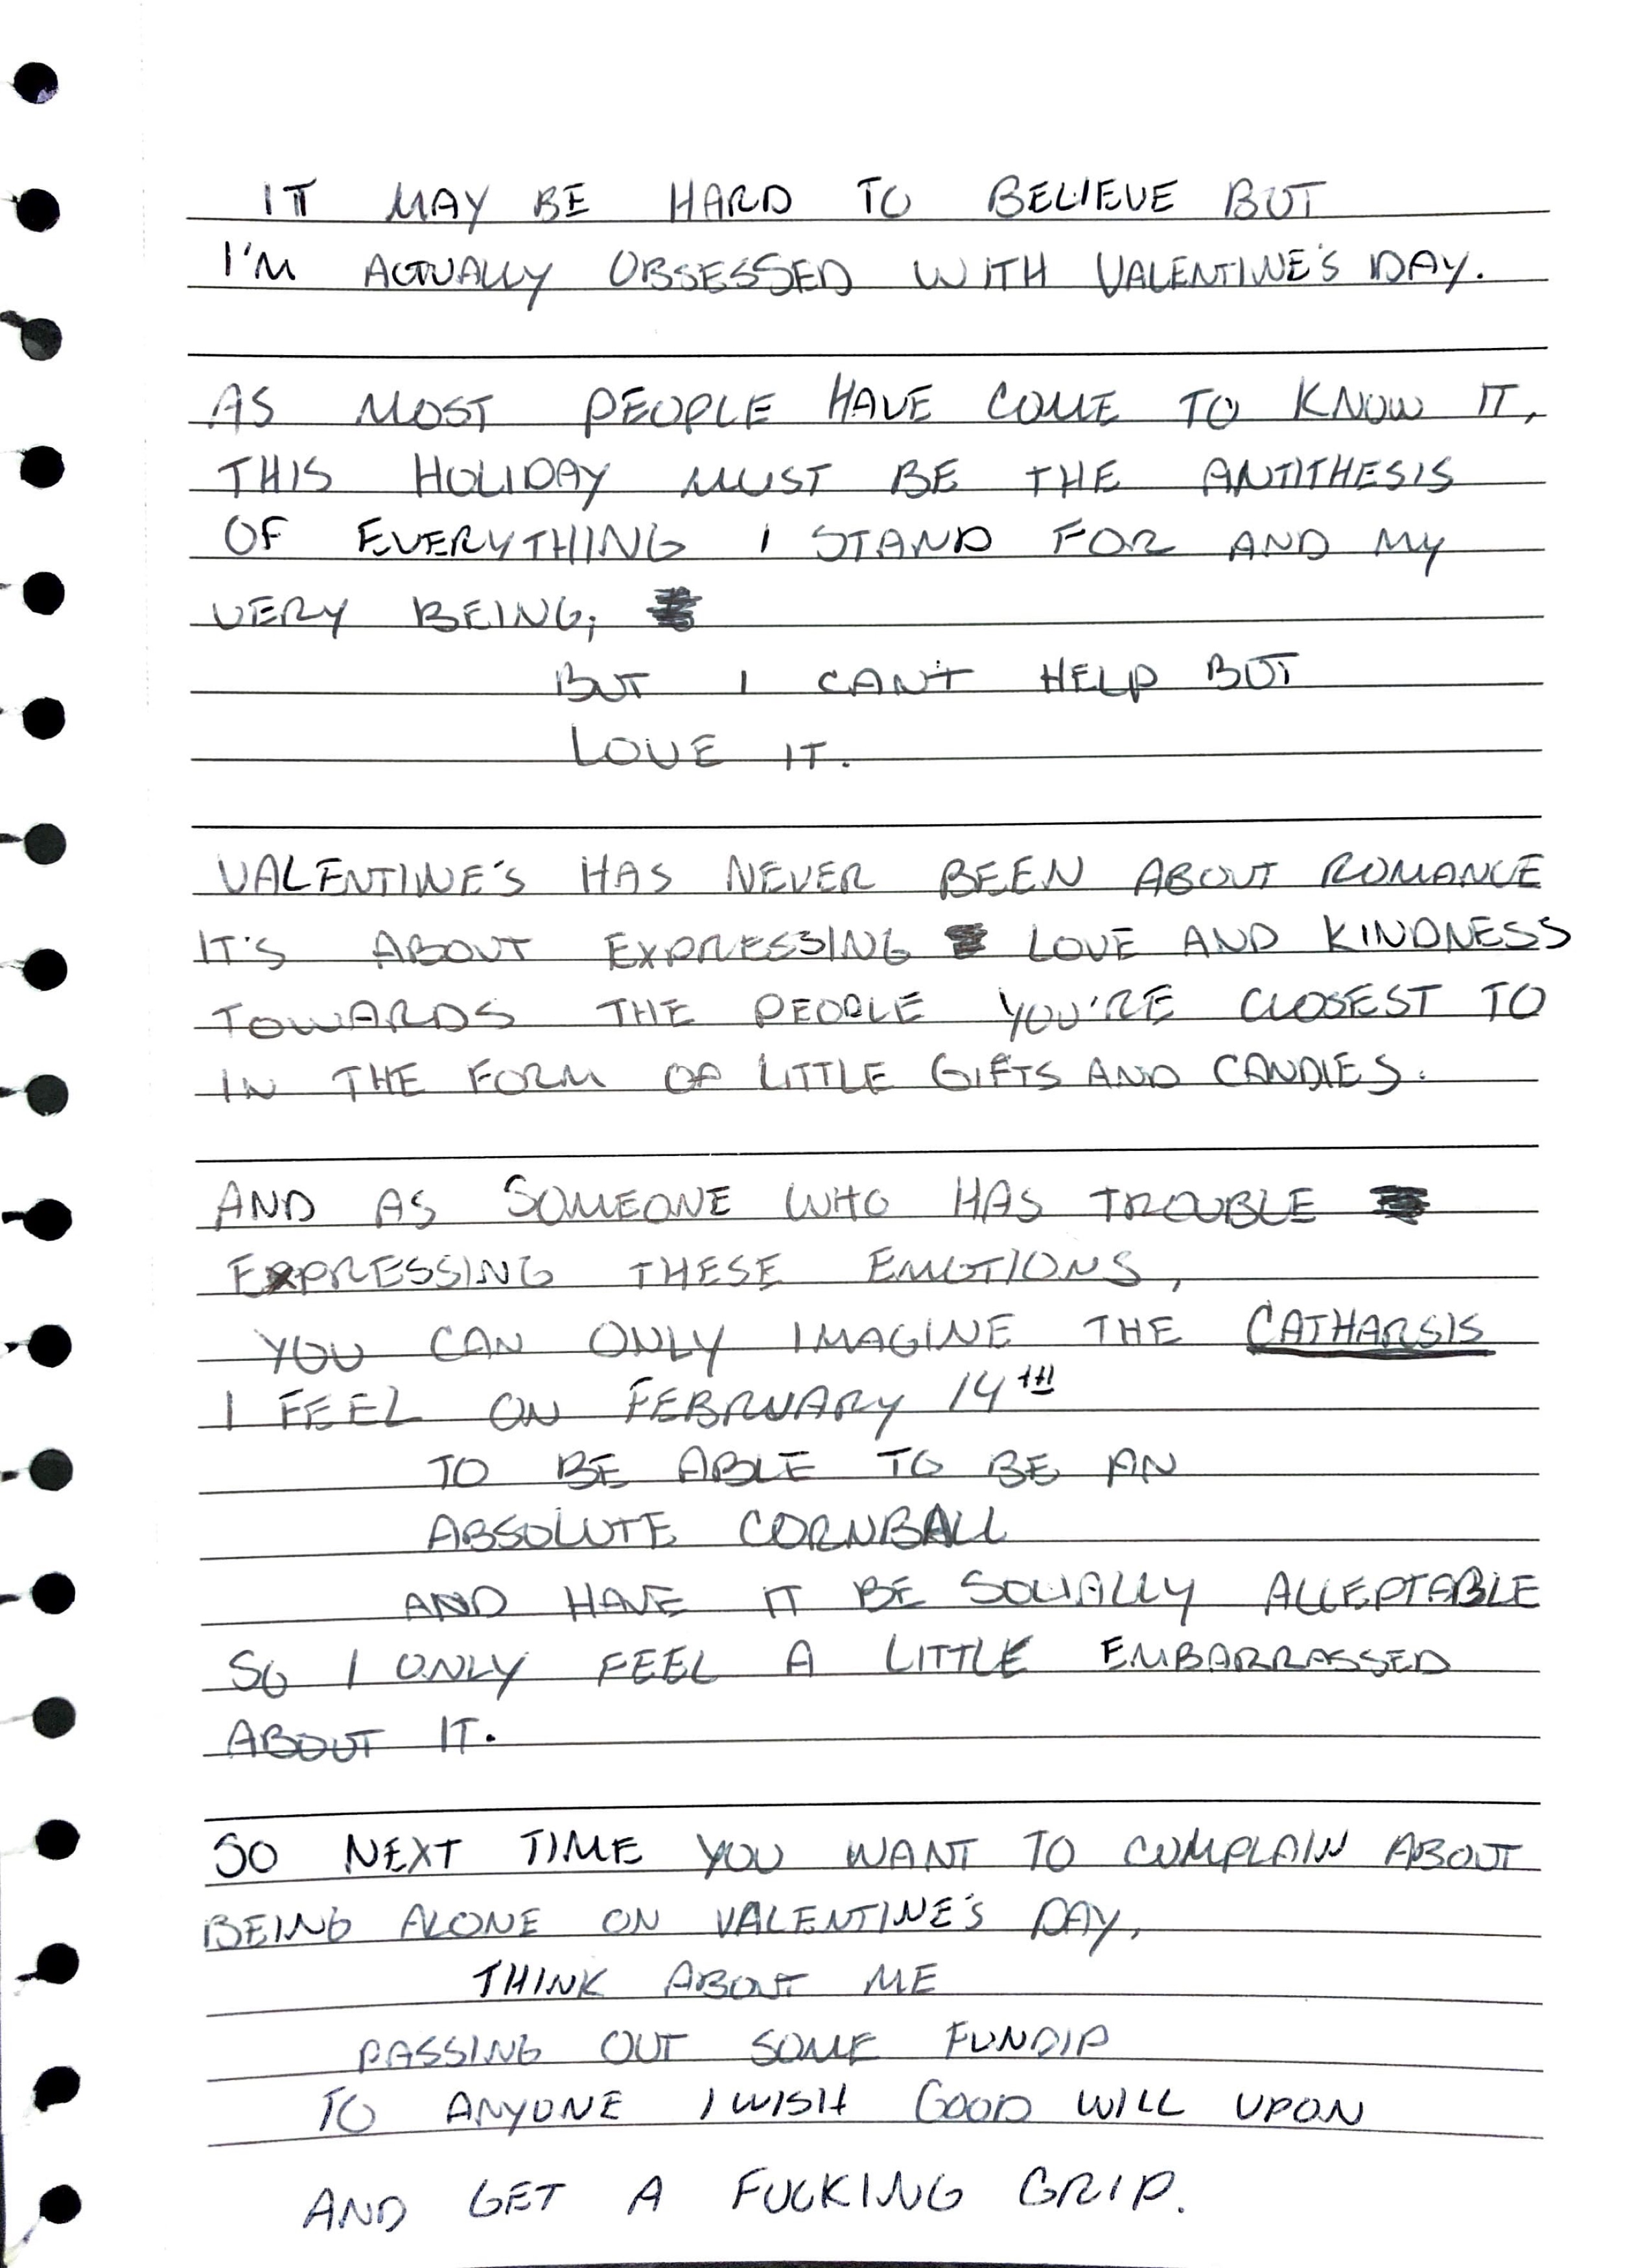 IT MAY BE HARD TO BELIEVE BUT
I'M ACTUALLY OBSESSED WITH VALENTINE'S DAY.
AS MOST PEOPLE HAVE COME TO KNOW IT,
THIS HOLIDAY MUST BE THE ANTITHESIS
OF EVERYTHING I STAND FOR AND MY
VERY BEING;
BUT I CAN'T HELP BUT
LOVE IT.
VALENTINE'S HAS NEVER BEEN ABOUT ROMANCE
IT'S ABOUT EXPRESSING LOVE AND KINDNESS
TOWARDS THE PEOPLE YOU'RE CLOSEST TO
IN THE FORM OF LITTLE GIFTS AND CANDIES.
AND AS SOMEONE WHO HAS TROUBLE
EXPRESSING THESE EMOTIONS,
YOU CAN ONLY IMAGINE THE CATHARSIS
I FEEL ON FEBRUARY 14TH
TO BE ABLE TO BE AN
ABSOLUTE CORNBALL
AND HAVE IT BE SOCIALLY ACCEPTABLE
SO I ONLY FEEL A LITTLE EMBARRASSED
ABOUT IT.
SO NEXT TIME YOU WANT TO COMPLAIN ABOUT
BEING ALONE ON VALENTINE'S DAY,
THINK ABOUT ME
PASSING OUT SOME FUNDIP
TO ANYONE I WISH GOOD WILL UPON
AND GET A FUCKING GRIP.